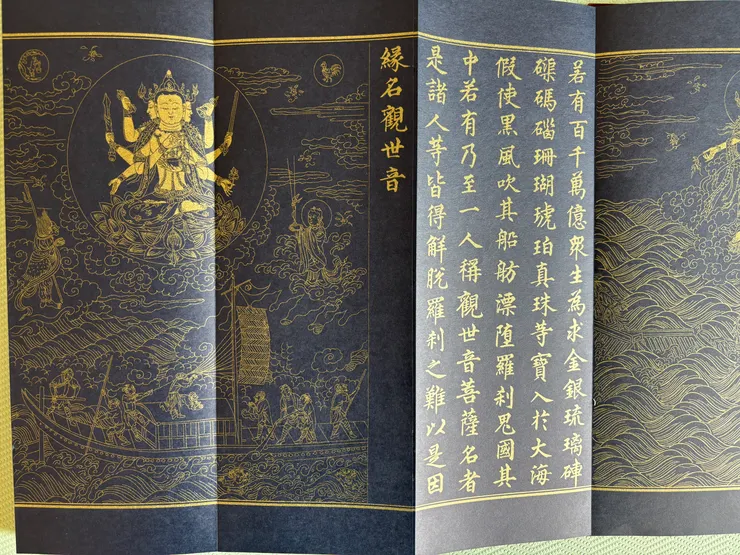 若有百千萬億眾生為求金銀琉璃硨
磲碼碯珊瑚琥珀真珠等寶入於大海
假使黑風吹其船舫漂墮羅剎鬼國其
中若有乃至一人稱觀世音菩薩名者
是諸人等皆得解脫羅剎之難以是因
緣名觀世音